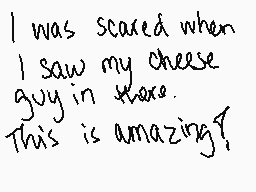 I was scared when
I saw my cheese
guy in there.
This is amazing!